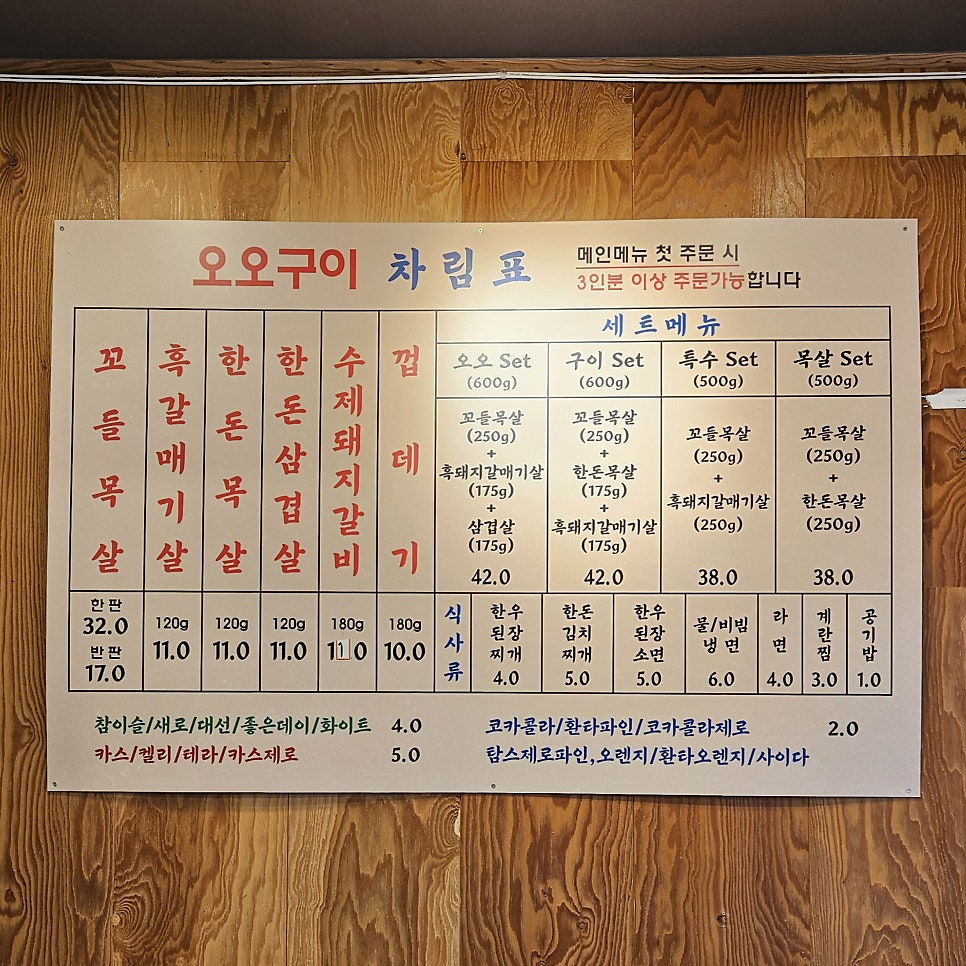 오오구이 차림표
메인메뉴 첫 주문 시
3인분 이상 주문가능합니다
꼬들목살
흑갈매기살
한돈목살
한돈삼겹살
수제돼지갈비
껍데기
한판
32.0
반판
17.0
120g
11.0
120g
11.0
120g
11.0
180g
11.0
180g
10.0
세트메뉴
오오 Set
(600g)
꼬들목살
(250g)
+
흑돼지갈매기살
(175g)
+
삼겹살
(175g)
42.0
구이 Set
(600g)
꼬들목살
(250g)
+
한돈목살
(175g)
+
흑돼지갈매기살
(175g)
42.0
특수 Set
(500g)
꼬들목살
(250g)
+
흑돼지갈매기살
(250g)
38.0
목살 Set
(500g)
꼬들목살
(250g)
+
한돈목살
(250g)
38.0
식사류
한우
된장
찌개
4.0
한돈
김치
찌개
5.0
한우
된장
소면
5.0
물/비빔
냉면
6.0
라면
4.0
계란찜
3.0
공기밥
1.0
참이슬/새로/대선/좋은데이/화이트 4.0
카스/켈리/테라/카스제로 5.0
코카콜라/환타파인/코카콜라제로 2.0
탐스제로파인,오렌지/환타오렌지/사이다